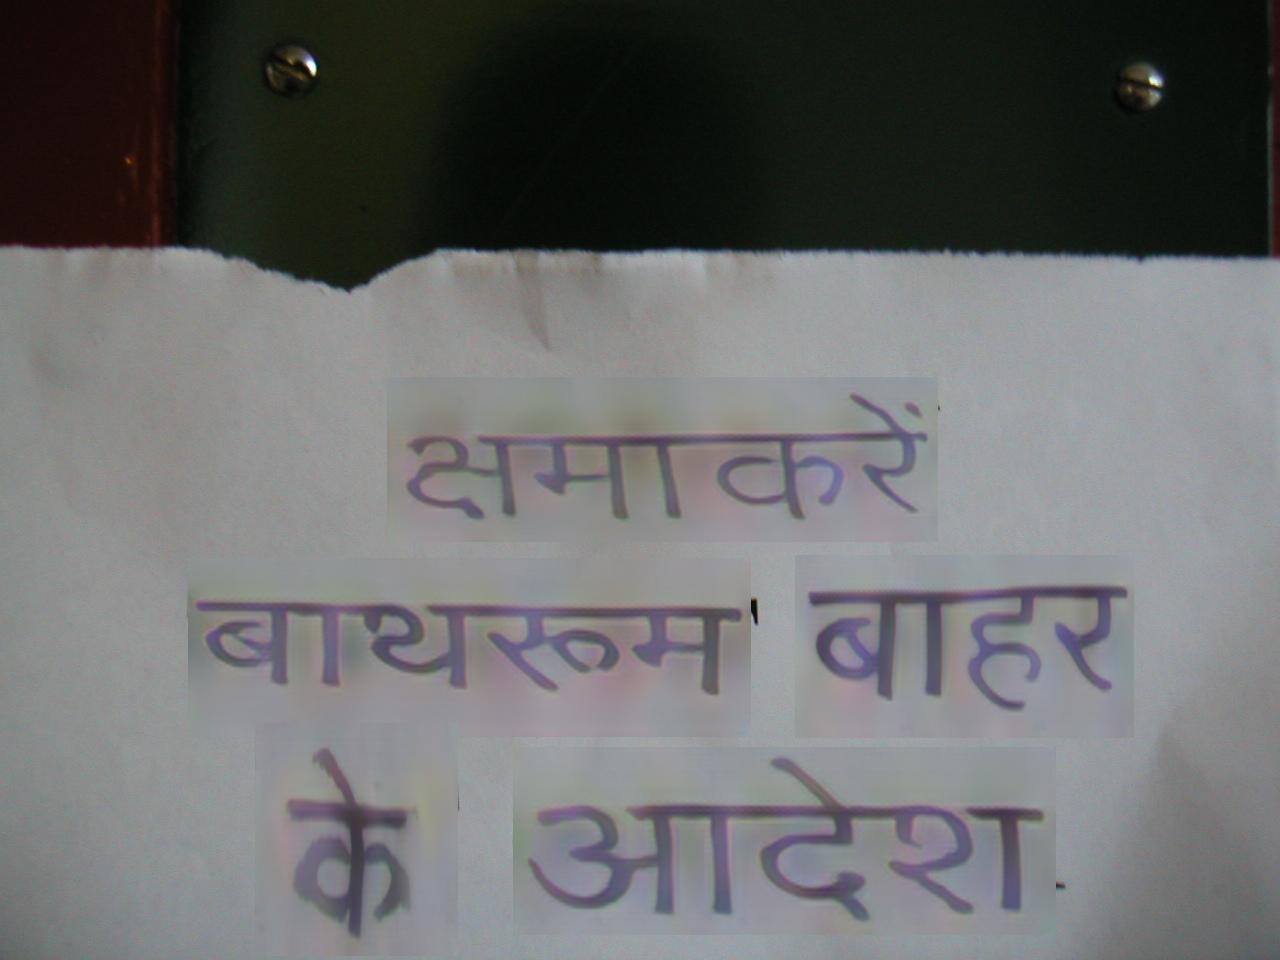 क्षमा करें
बाथरूम बाहर
के आदेश